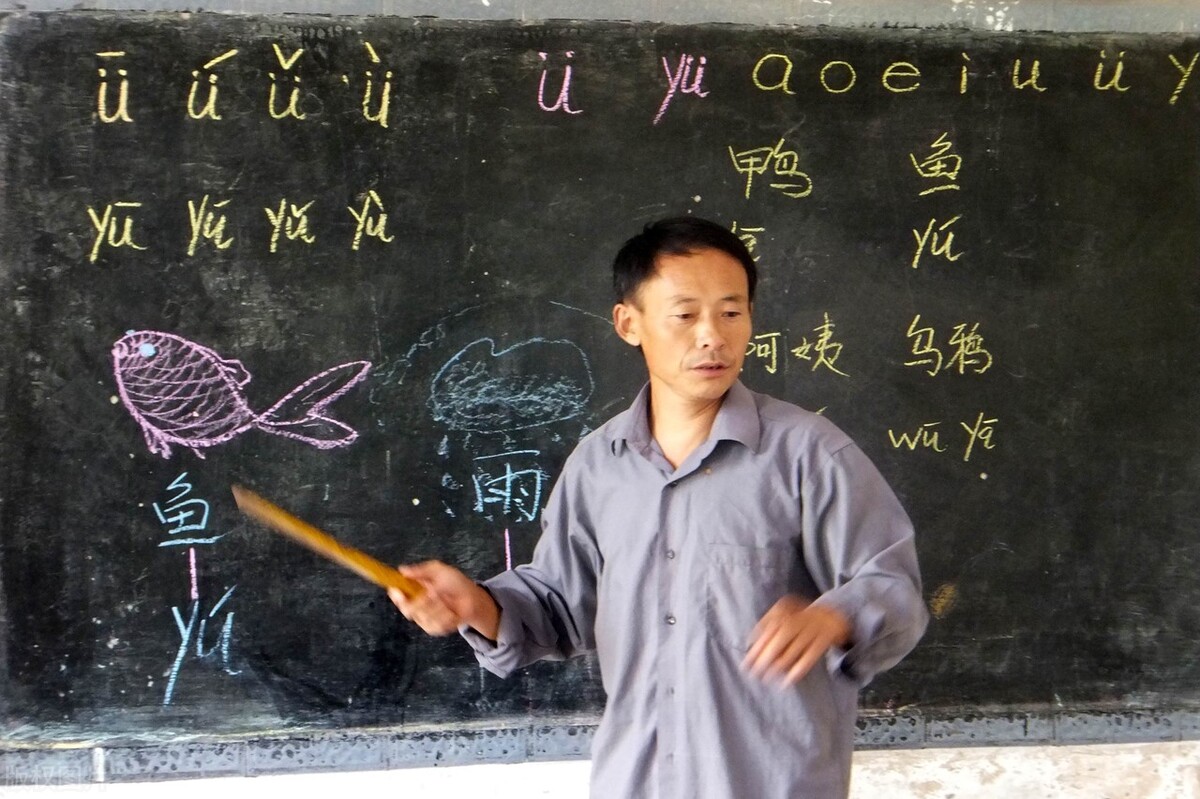 ǖ ǘ ǚ ǜ ü yü a o e i u ü y
鸭 鱼
yū yú yǔ yù yú
阿姨 乌鸦
wū yā
雨
鱼
yú